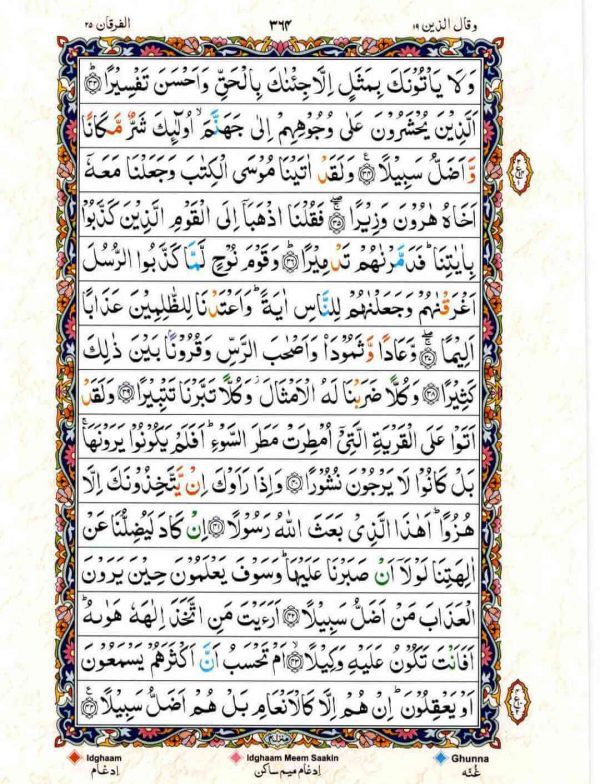 وقال الذين ١٩
٣٦٤
الفرقان ٢٥
وَلَا يَاْتُوْنَكَ بِمَثَلٍ اِلَّا جِئْنٰكَ بِالْحَقِّ وَاَحْسَنَ تَفْسِيْرًا ؕ﴿۳۳﴾
اَلَّذِيْنَ يُحْشَرُوْنَ عَلٰى وُجُوْهِهِمْ اِلٰى جَهَنَّمَ ۙ اُولٰٓئِكَ شَرٌّ مَّكَانًا
وَّاَضَلُّ سَبِيْلًا ﴿۳۴﴾ وَلَقَدْ اٰتَيْنَا مُوْسَى الْكِتٰبَ وَجَعَلْنَا مَعَهٗۤ
اَخَاهُ هٰرُوْنَ وَزِيْرًا ﴿۳۵﴾ فَقُلْنَا اذْهَبَاۤ اِلَى الْقَوْمِ الَّذِيْنَ كَذَّبُوْا
بِاٰيٰتِنَا ؕ فَدَمَّرْنٰهُمْ تَدْمِيْرًا ؕ﴿۳۶﴾ وَقَوْمَ نُوْحٍ لَّمَّا كَذَّبُوا الرُّسُلَ
اَغْرَقْنٰهُمْ وَجَعَلْنٰهُمْ لِلنَّاسِ اٰيَةً ؕ وَاَعْتَدْنَا لِلظّٰلِمِيْنَ عَذَابًا
اَلِيْمًا ﴿۳۷﴾ وَّعَادًا وَّثَمُوْدَا۟ وَاَصْحٰبَ الرَّسِّ وَقُرُوْنًۢا بَيْنَ ذٰلِكَ
كَثِيْرًا ﴿۳۸﴾ وَكُلًّا ضَرَبْنَا لَهُ الْاَمْثَالَ ؗ وَكُلًّا تَبَّرْنَا تَتْبِيْرًا ﴿۳۹﴾ وَلَقَدْ
اَتَوْا عَلَى الْقَرْيَةِ الَّتِيْۤ اُمْطِرَتْ مَطَرَ السَّوْءِ ؕ اَفَلَمْ يَكُوْنُوْا يَرَوْنَهَا ۚ
بَلْ كَانُوْا لَا يَرْجُوْنَ نُشُوْرًا ﴿۴۰﴾ وَاِذَا رَاَوْكَ اِنْ يَّتَّخِذُوْنَكَ اِلَّا
هُزُوًا ؕ اَهٰذَا الَّذِيْ بَعَثَ اللّٰهُ رَسُوْلًا ﴿۴۱﴾ اِنْ كَادَ لَيُضِلُّنَا عَنْ
اٰلِهَتِنَا لَوْلَاۤ اَنْ صَبَرْنَا عَلَيْهَا ؕ وَسَوْفَ يَعْلَمُوْنَ حِيْنَ يَرَوْنَ
الْعَذَابَ مَنْ اَضَلُّ سَبِيْلًا ﴿۴۲﴾ اَرَءَيْتَ مَنِ اتَّخَذَ اِلٰهَهٗ هَوٰىهُ ؕ
اَفَاَنْتَ تَكُوْنُ عَلَيْهِ وَكِيْلًا ۙ﴿۴۳﴾ اَمْ تَحْسَبُ اَنَّ اَكْثَرَهُمْ يَسْمَعُوْنَ
اَوْ يَعْقِلُوْنَ ؕ اِنْ هُمْ اِلَّا كَالْاَنْعَامِ بَلْ هُمْ اَضَلُّ سَبِيْلًا ﴿۴۴﴾
منزل ٤
Idghaam
ادغام
Idghaam Meem Saakin
ادغام میم ساکن
Ghunna
غُنّه